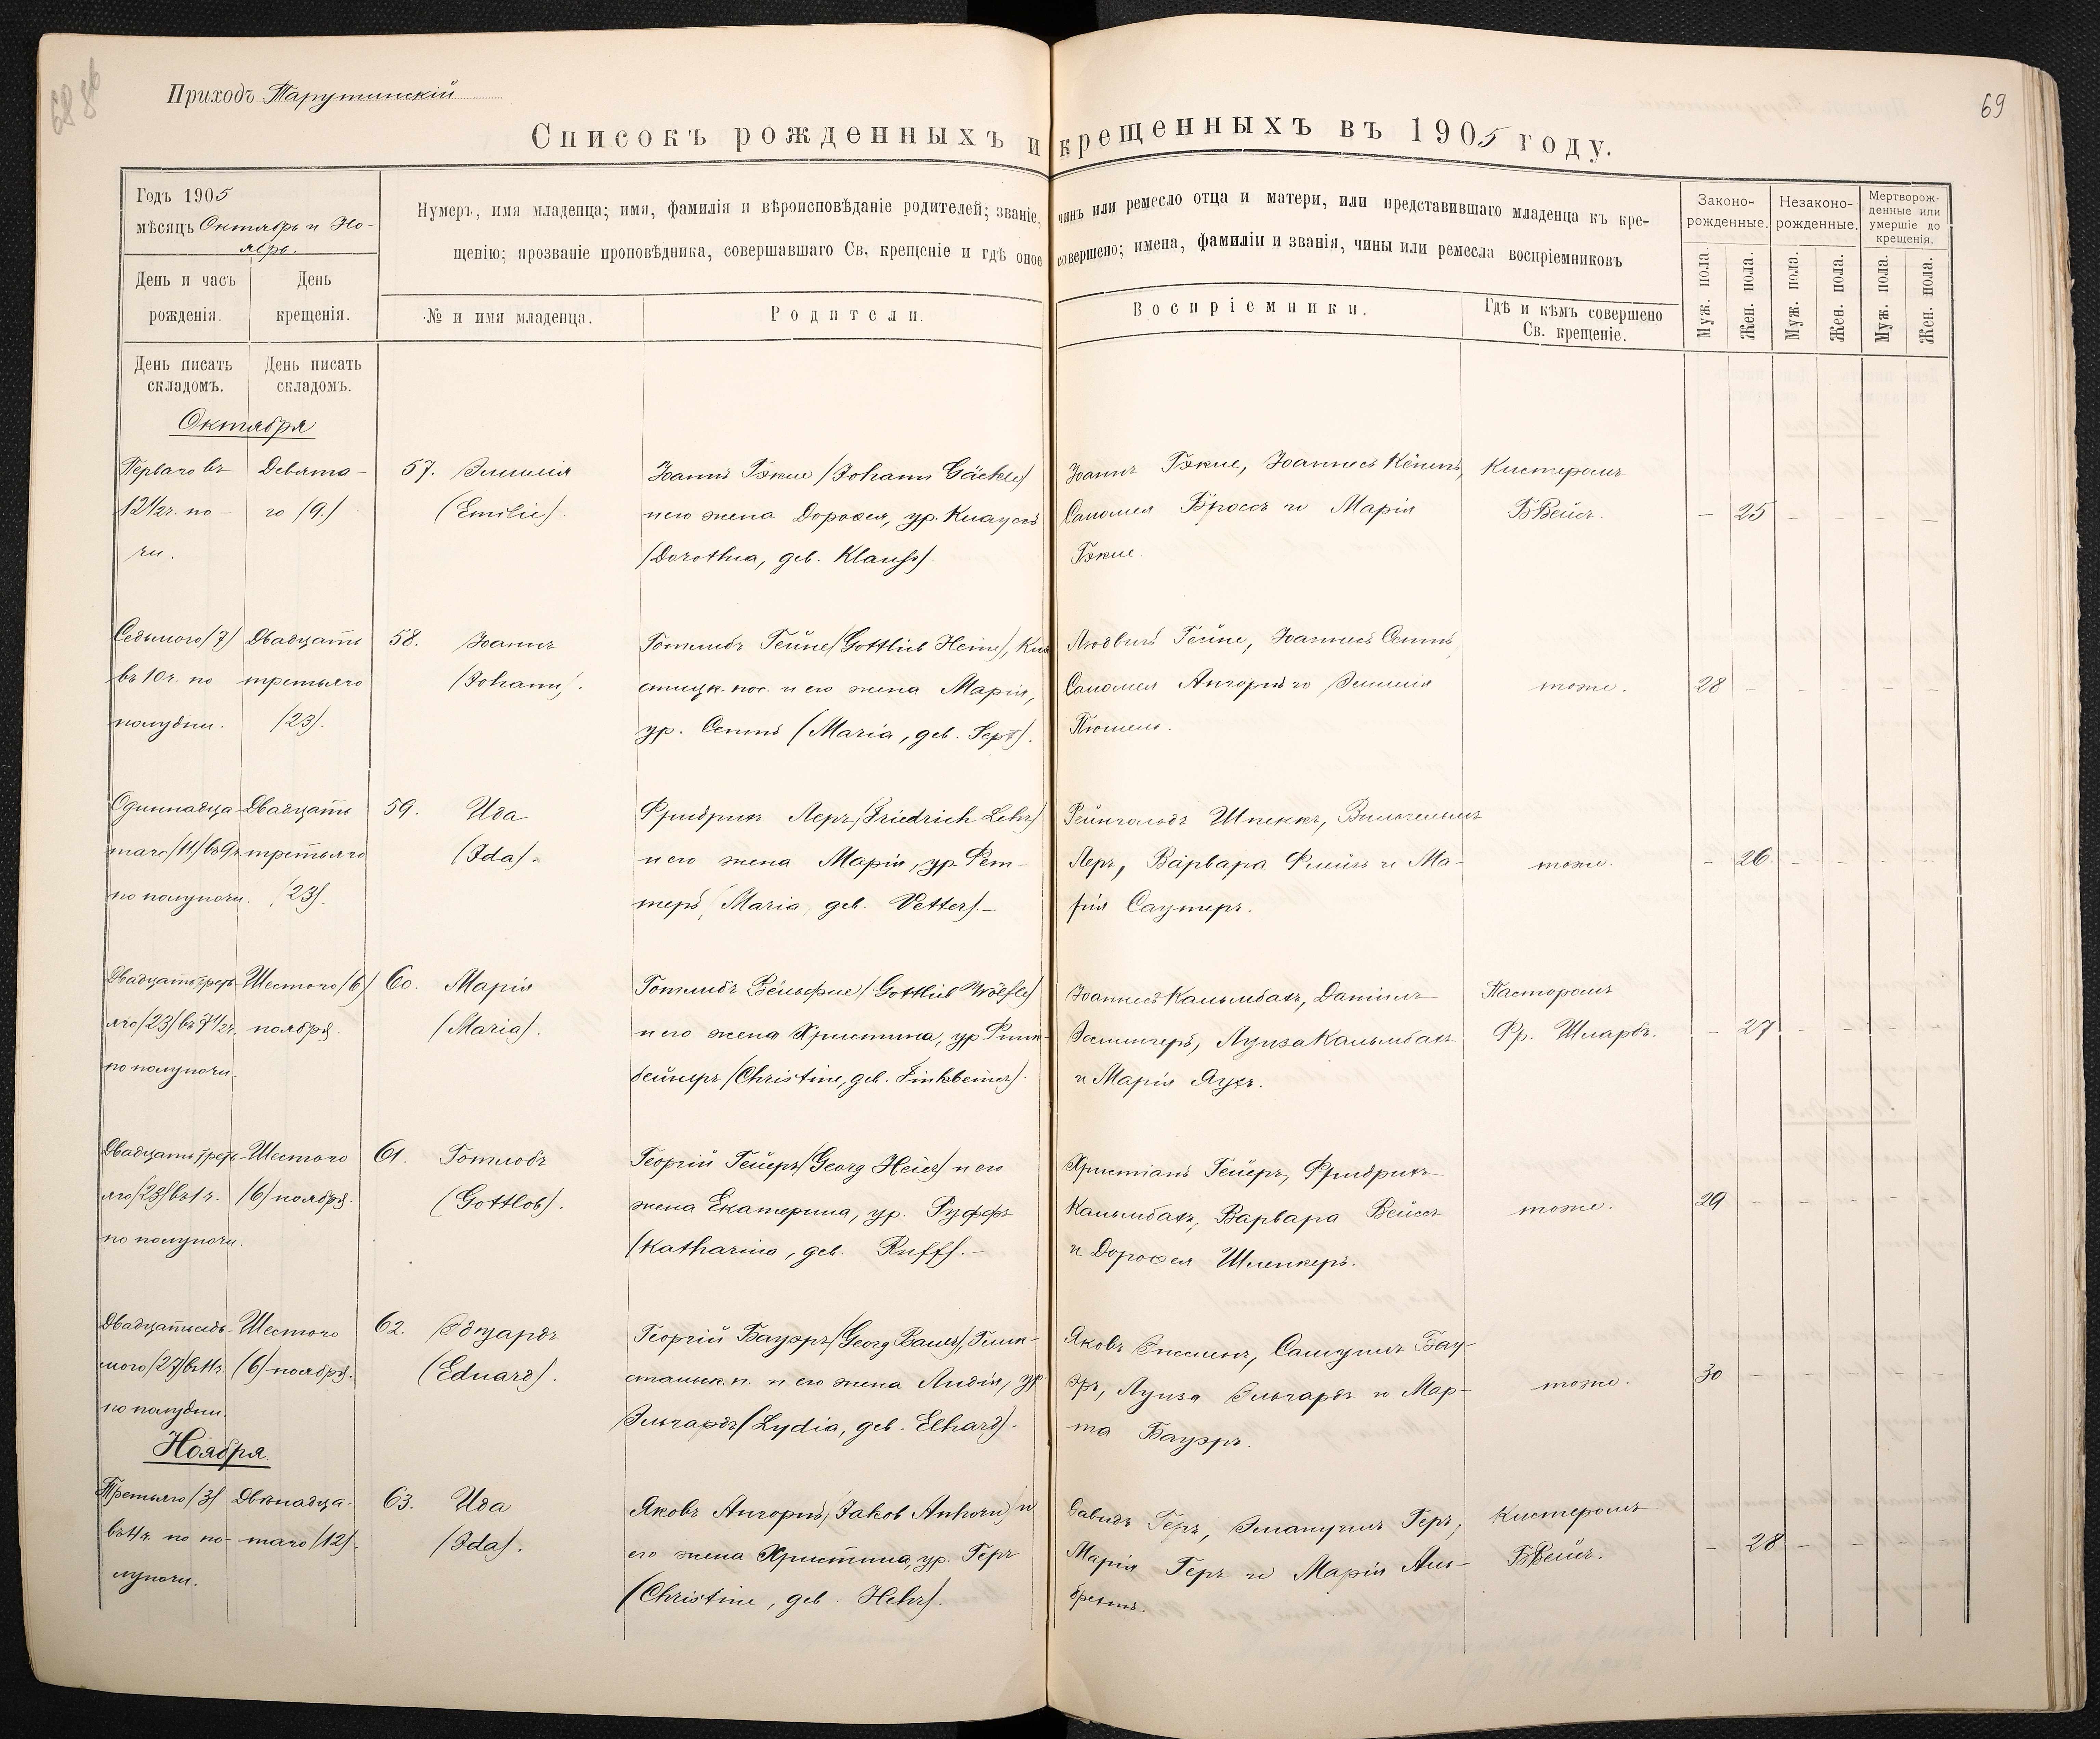 68 об
69
Приходъ Тарутинскій
Списокъ рожденныхъ и крещенныхъ въ 1905 году.
Годъ 1905
мѣсяцъ Октябрь и Но-
ябрь.
День и часъ
рожденія.
День
крещенія.
Нумеръ, имя младенца; имя, фамилія и вѣроисповѣданіе родителей; званіе, чинъ или ремесло отца и матери, или представившаго младенца къ кре-
щенію; прозваніе проповѣдника, совершавшаго Св. крещеніе и гдѣ оное совершено; имена, фамиліи и званія, чины или ремесла воспріемниковъ
№ и имя младенца.
Родители.
Воспріемники.
Гдѣ и кѣмъ совершено
Св. крещеніе.
Законо-
рожденные.
Незаконо-
рожденные.
Мертворож-
денные или
умершіе до
крещенія.
Муж. пола
Жен. пола.
Муж. пола.
Жен. пола.
Муж. пола.
Жен. пола.
День писать
складомъ.
День писать
складомъ.
Октября
Перваго въ
12½ч. но-
чи.
Девята-
го (9.)
57. Эмилія
(Emilie).
Іоаннъ Гэкле (Johann Gäckle)
и его жена Доротея, ур. Клаусъ
(Dorothea, geb. Klauss).
Іоаннъ Гэкле, Іоаннесъ Кёнигъ,
Саломея Броссъ и Марія
Гэкле.
Кистеромъ
Б Вейсъ.
— 25 — — — —
Седьмого (7)
въ 10ч. по
полудни.
Двадцать
третьяго
(23).
58. Іоаннъ
(Johann).
Готлибъ Гейне (Gottlieb Heine), Куль
стицк. пос. и его жена Марія,
ур. Септъ (Maria, geb. Sept).
Людвигъ Гейне, Іоаннесъ Септъ,
Саломея Ангорнъ и Эмилія
тоже.
28 — — — — —
Одиннадца-
таго (11) въ 9ч.
по полуночи.
Двадцать
третьяго
(23).
59. Ида
(Ida).
Фридрихъ Леръ (Friedrich Lehr)
и его жена Марія, ур. Фет-
теръ (Maria, geb. Vetter).—
Рейнгольдъ Шпеккъ, Вильгельмъ
Леръ, Варвара Флейгъ и Ма-
рія Саутеръ.
тоже.
— 26 — — — —
Двадцать треть-
яго (23) въ 7½ч.
по полуночи.
Шестого (6)
ноября.
60. Марія
(Maria).
Готлибъ Вёльфле (Gottlieb Wölfle)
и его жена Христина, ур. Финк-
бейнеръ (Christine, geb. Finkbeiner).
Іоаннесъ Кальмбахъ, Даніилъ
Эслингеръ, Луиза Кальмбахъ
и Марія Яухъ.
Пасторомъ
Фр. Шларбъ.
— 27 — — — —
Двадцать треть-
яго (23) въ 1 ч.
по полуночи.
Шестого
(6) ноября.
61. Готлобъ
(Gottlob).
Георгій Гейеръ (Georg Heier) и его
жена Екатерина, ур. Руффъ
(Katharina, geb. Ruff).—
Христіанъ Гейеръ, Фридрихъ
Кальмбахъ, Варвара Вейссъ
и Доротея Шленкеръ.
тоже.
29 — — — — —
Двадцать седь-
мого (27) въ 11ч.
по полудни.
Шестого
(6) ноября.
62. Эдуардъ
(Eduard).
Георгій Бауэръ (Georg Bauer), Гник-
стальск. п. и его жена Лидія, ур.
Эльгардъ (Lydia, geb. Elhard).—
Яковъ Энсленъ, Самуилъ Бау-
эръ, Луиза Эльгардъ и Мар-
та Бауэръ.
тоже.
30 — — — — —
Ноября.
Третьяго (3)
въ 11ч. по по-
луночи.
Двѣнадца-
таго (12).
63. Ида
(Ida).
Яковъ Ангорнъ (Jakob Anhorn) и
его жена Христина, ур. Геръ
(Christine, geb. Hehr).
Давидъ Геръ, Эмануилъ Геръ,
Марія Геръ и Марія Аль-
брехтъ.
Кистеромъ
Б Вейсъ.
— 28 — — — —